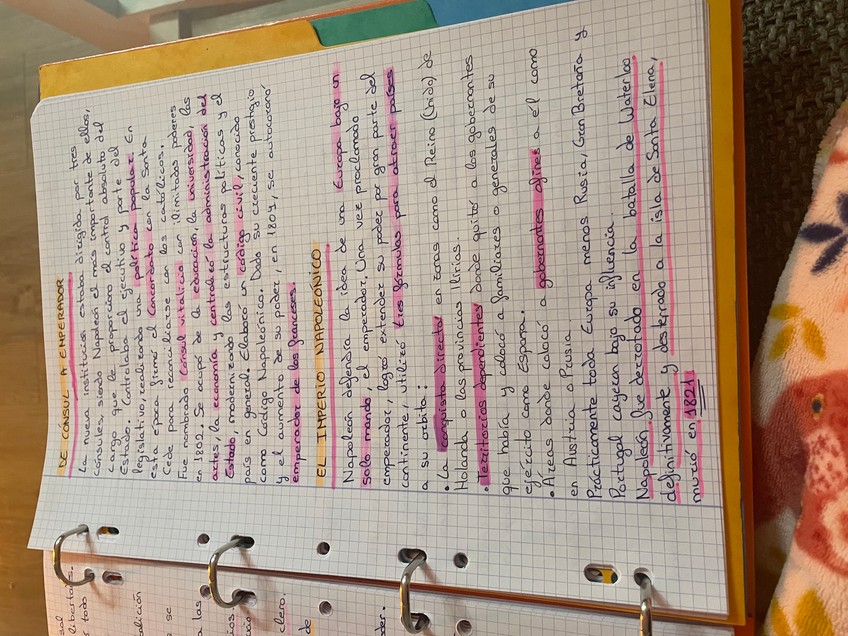 DE CÓNSUL A EMPERADOR
La nueva institución estaba dirigida por tres
cónsules, siendo Napoleón el más importante de ellos,
cargo que le proporcionó el control absoluto del
Estado. Controlaba el ejecutivo y parte del
legislativo, realizando una política popular. En
esta época firmó el Concordato con la Santa
Sede para reconciliarse con los católicos.
Fue nombrado cónsul vitalicio con ilimitados poderes
en 1802. Se ocupó de la educación, la universidad, las
artes, la economía y centralizó la administración del
Estado, modernizando las estructuras políticas y el
país en general. Elaboró un código civil, conocido
como Código Napoleónico. Dado su creciente prestigio
y el aumento de su poder, en 1804, se autocoronó
emperador de los franceses.
EL IMPERIO NAPOLEÓNICO
Napoleón defendía la idea de una Europa bajo un
solo mando, el emperador. Una vez proclamado
emperador, logró extender su poder por gran parte del
continente, utilizó tres fórmulas para atraer países
a su órbita:
• La conquista directa en zonas como el Reino (Unido) de
Holanda o las provincias Ilirias.
• Territorios dependientes donde quitó a los gobernantes
que había y colocó a familiares o generales de su
ejército como España.
• Áreas donde colocó a gobernantes afines a el como
en Austria o Prusia.
Prácticamente toda Europa menos Rusia, Gran Bretaña y
Portugal cayeron bajo su influencia.
Napoleón fue derrotado en la batalla de Waterloo
definitivamente y desterrado a la isla de Santa Elena,
murió en 1821
sal
libertades.
todo
dición
se
a las
clero.
de
der.